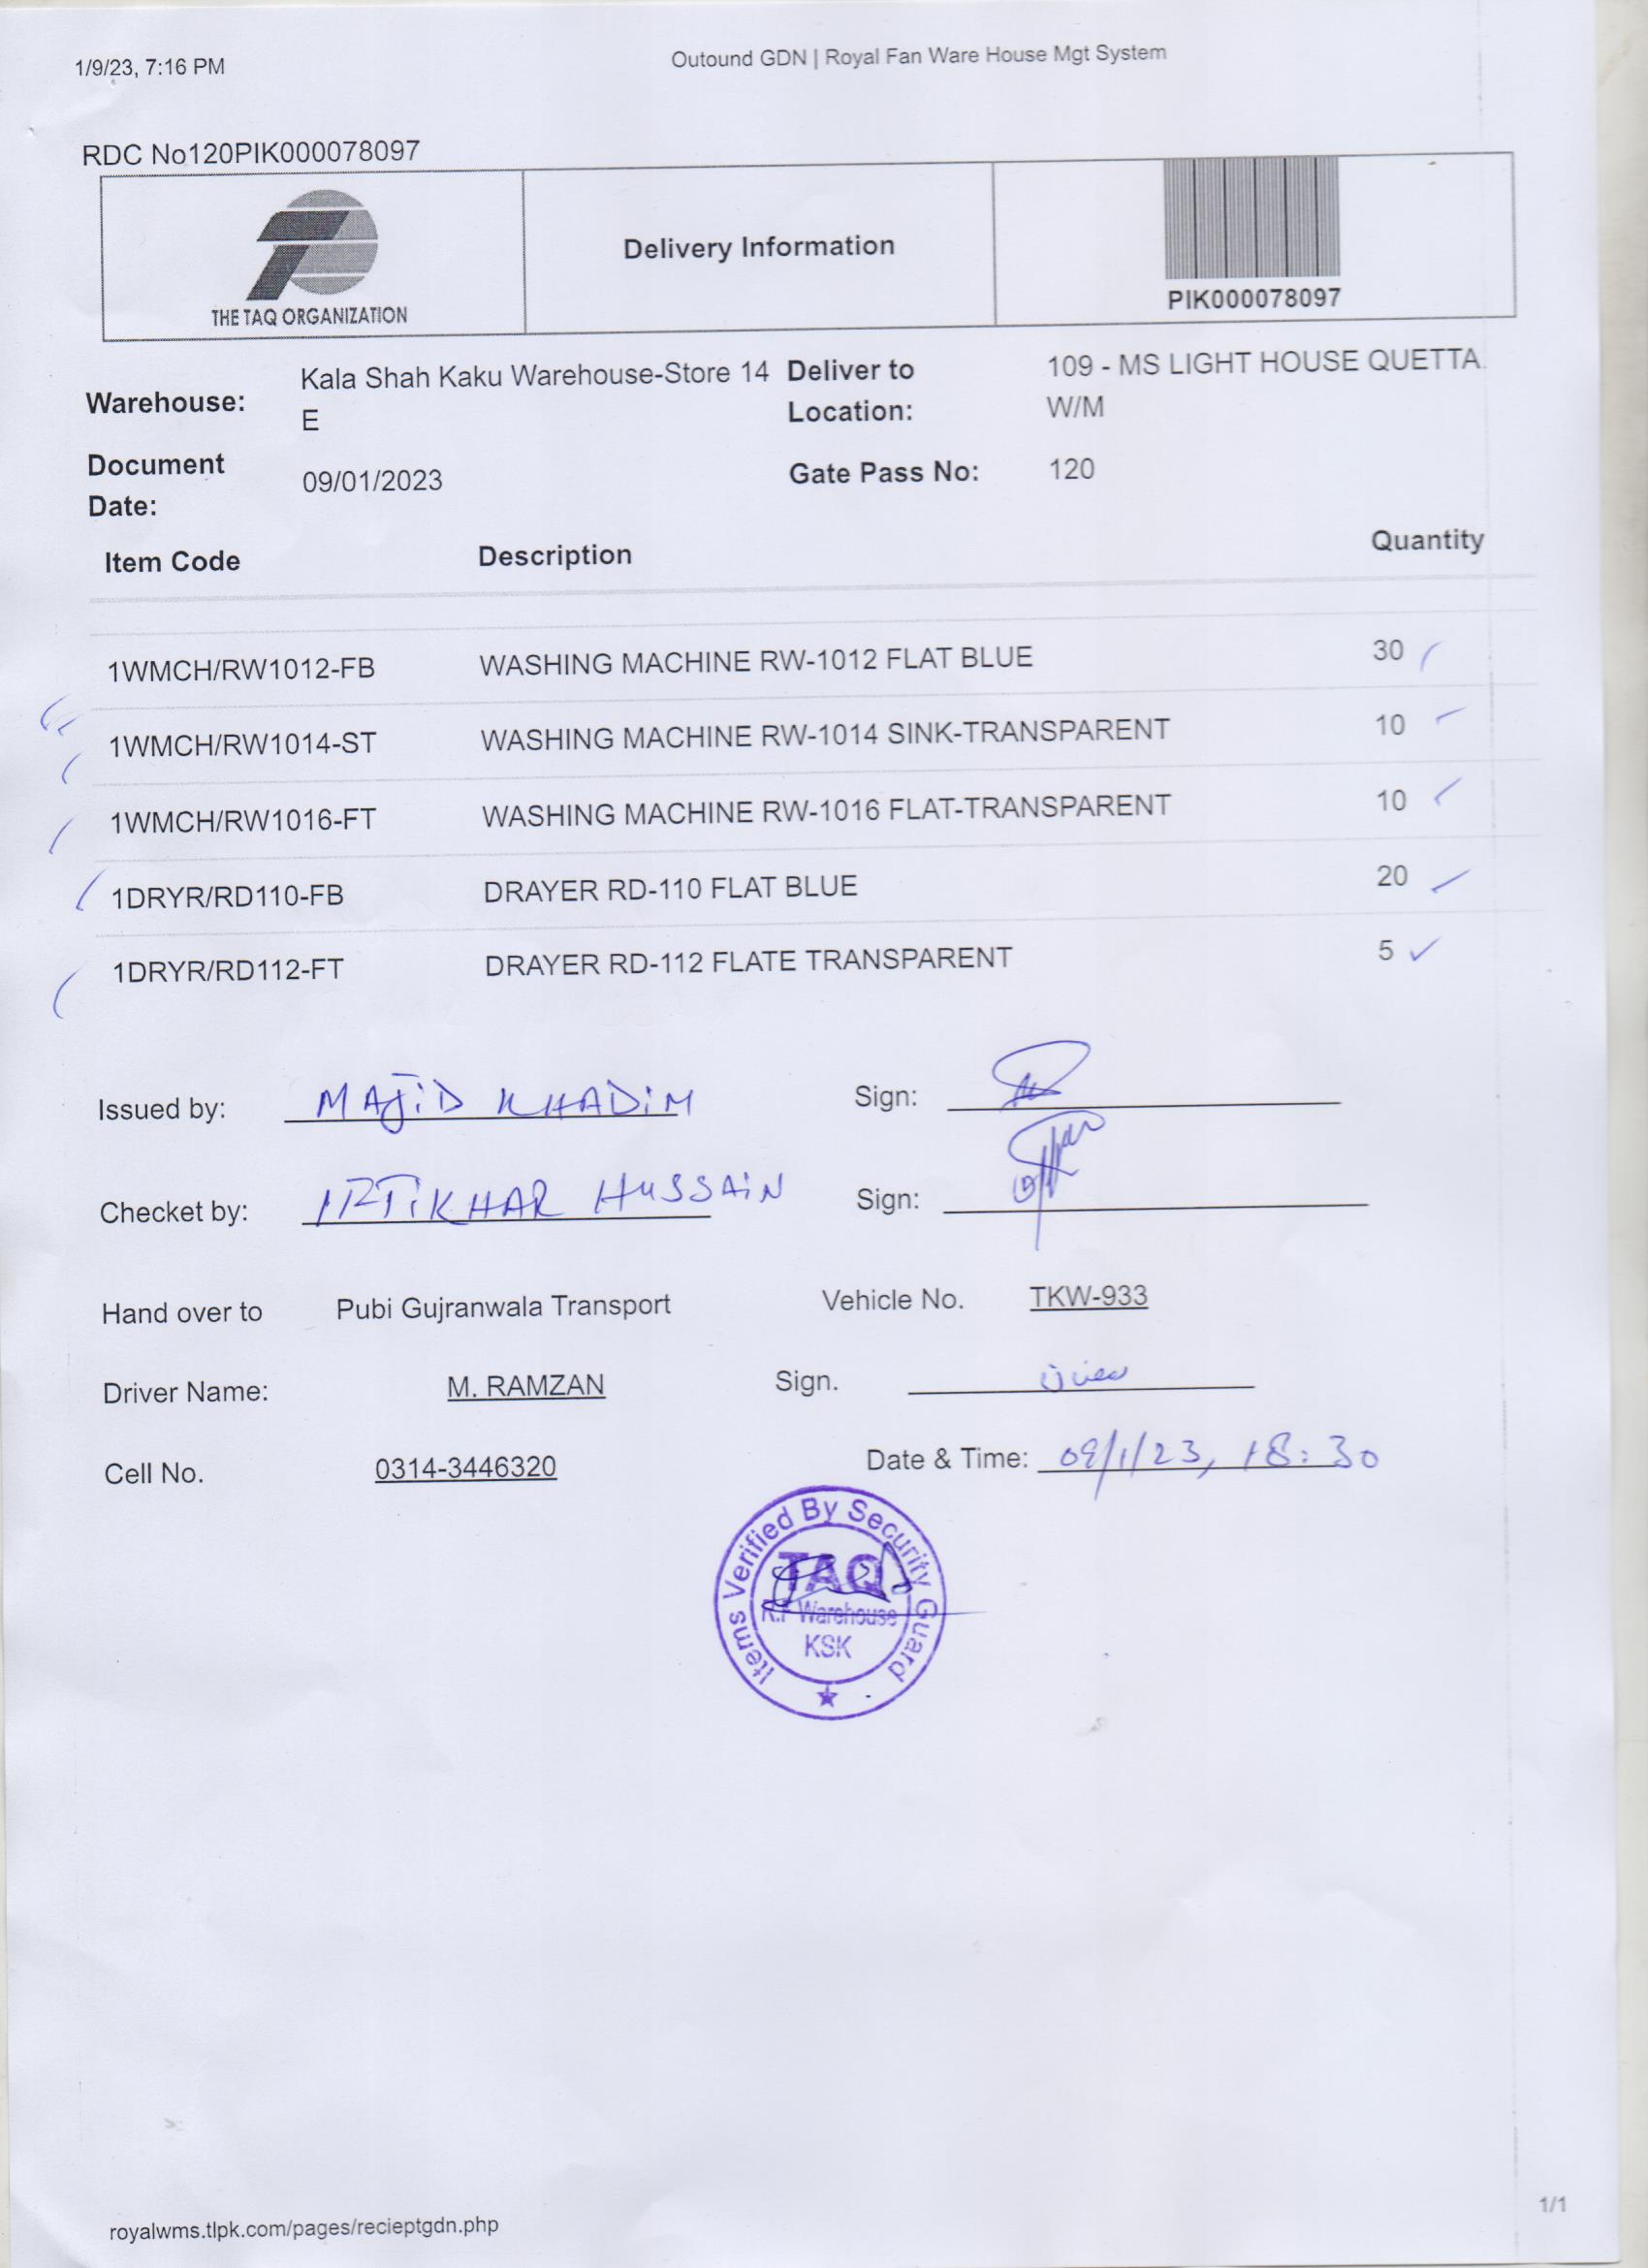 1/9/23, 7:16 PM
Outound GDN | Royal Fan Ware House Mgt System
RDC No120PIK000078097
THE TAQ ORGANIZATION
Delivery Information
PIK000078097
Warehouse: Kala Shah Kaku Warehouse-Store 14 E
Deliver to Location: 109 - MS LIGHT HOUSE QUETTA. W/M
Document Date: 09/01/2023
Gate Pass No: 120
Item Code Description Quantity
1WMCH/RW1012-FB WASHING MACHINE RW-1012 FLAT BLUE 30
1WMCH/RW1014-ST WASHING MACHINE RW-1014 SINK-TRANSPARENT 10
1WMCH/RW1016-FT WASHING MACHINE RW-1016 FLAT-TRANSPARENT 10
1DRYR/RD110-FB DRAYER RD-110 FLAT BLUE 20
1DRYR/RD112-FT DRAYER RD-112 FLATE TRANSPARENT 5
Issued by: MAJID KHADIM Sign:
Checket by: IFTIKHAR HUSSAIN Sign:
Hand over to Pubi Gujranwala Transport Vehicle No. TKW-933
Driver Name: M. RAMZAN Sign.
Cell No. 0314-3446320 Date & Time: 09/1/23, 18:30
Items Verified By Security Guard
TAQ
R.F Warehouse
KSK
royalwms.tlpk.com/pages/recieptgdn.php
1/1